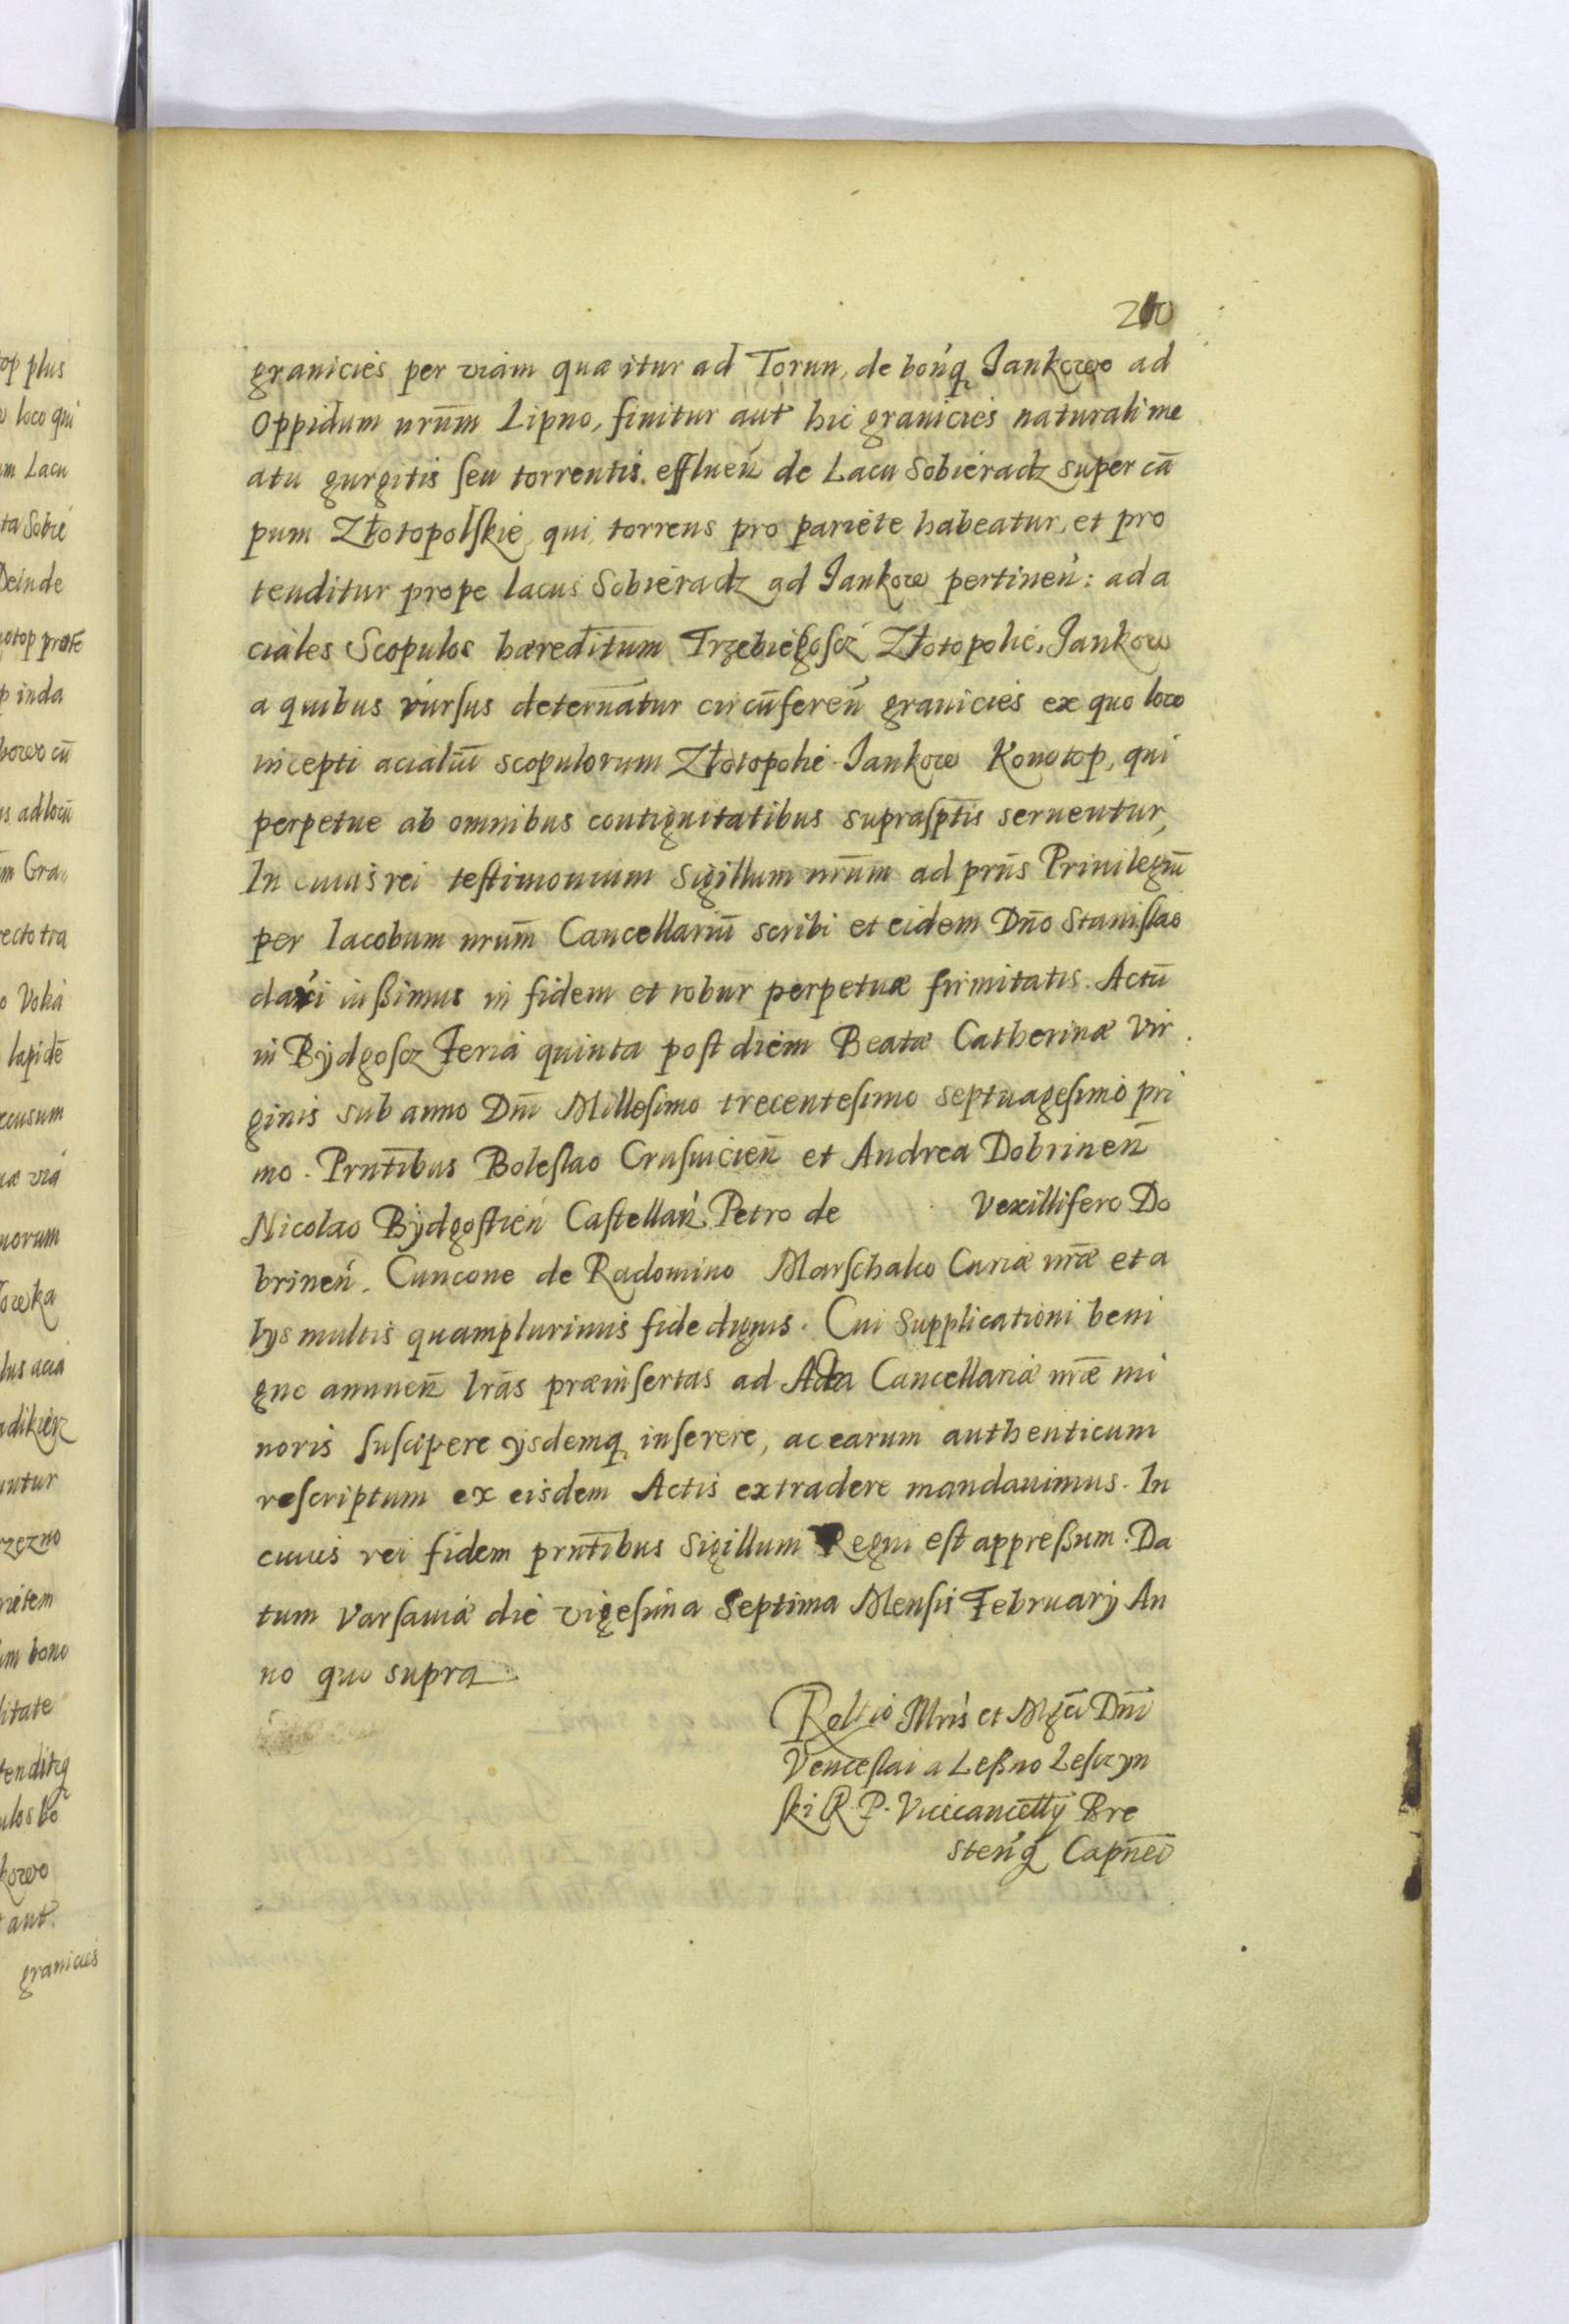 210
granicies per viam quæ itur ad Torun, de bońq Jankowo ad
Oppidum nrūm Lipno, finitur aut hic granicies naturali me
atu gurgitis ſeu torrentis. effluen̄ de Lacu Sobieradz super cā
pum Złotopolſkie, qui torrens pro pariete habeatur, et pro
tenditur prope lacus Sobieradz ad Jankow pertineń: ad a
ciales Scopulos hæreditum Trzebiegoſcz Złotopolie, Jankow
a quibus rursus detern̄atur circūferen̄ granicies ex quo loco
incepti acialiū scopulorum Złotopolie Jankow Konotop, qui
perpetue ab omnibus contiguitatibus supraſptis seruentur,
In cuius rei teſtimonium Sigillum nrūm ad prn̄s Priuilegiū
per Iacobum nrūm Cancellariū scribi et eidem Dn̄o Staniſlao
dari iuſsimus in fidem et robur perpetuæ firmitatis. Actū
in Bÿdgoſcz Feria quinta poſt diem Beatæ Catherinæ Vir
ginis sub anno Dn̄i Milleſimo trecenteſimo septuageſimo pri
mo. Prn̄tibus Boleſlao Cruſuicien̄ et Andrea Dobrinen̄
Nicolao Bÿdgoſtień Caſtellań, Petro de Vexillifero Do
brineń. Cuncone de Radomino Marſchalco Curiæ nr̄æ et a
lÿs multis quamplurimis fide dignis. Cui Supplicationi beni
gne annuen̄ lrās præinſertas ad Acta Cancellariæ nr̄æ mi
noris ſuſcipere ÿsdemq inſerere, ac earum authenticum
reſcriptum ex eisdem Actis extradere mandauimus. In
cuius rei fidem prn̄tibus Sigillum Regni eſt appreſsum. Da
tum Varſauiæ die vigeſima Septima Menſis Februarÿ An
no quo supra
Reltio Illris et Mgcī Dn̄i
Venceſlai a Leſzno Leſzczyn
ſki R. P. Vicecancellÿ Bre
steńq Capn̄ei
op plus
loco qui
m Lacu
ta Sobie
Deinde
otop prote
inda
bowo cū
s ad locū
m Gra
recto tra
o Volia
lapidē
ecusum
æ viā
norum
owka
lus acia
adikierz
untur
rzezno
rietem
m bono
litate
tenditq
ulos bo
kowo
aut
granicies